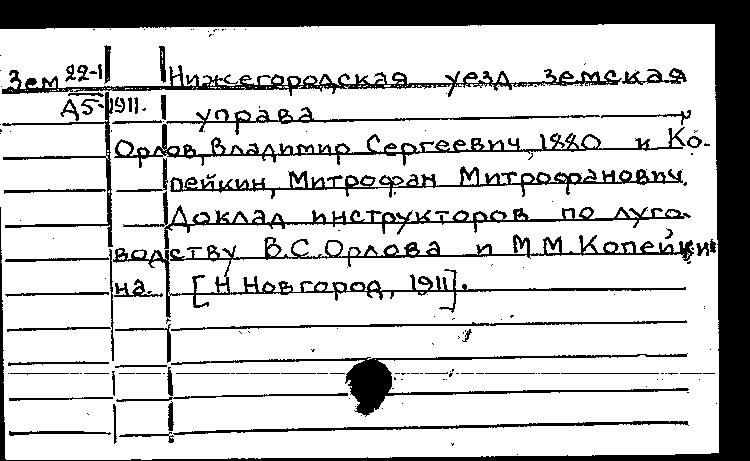 Зем 22-1 Нижегородская уезд земская
А5 1911. управа
Орлов, Владимир Сергеевич, 1880 и Ко-
пейкин, Митрофан Митрофанович.
Доклад инструкторов по луго-
водству В.С.Орлова и М.М.Копейки-
на. [Н.Новгород, 1911].